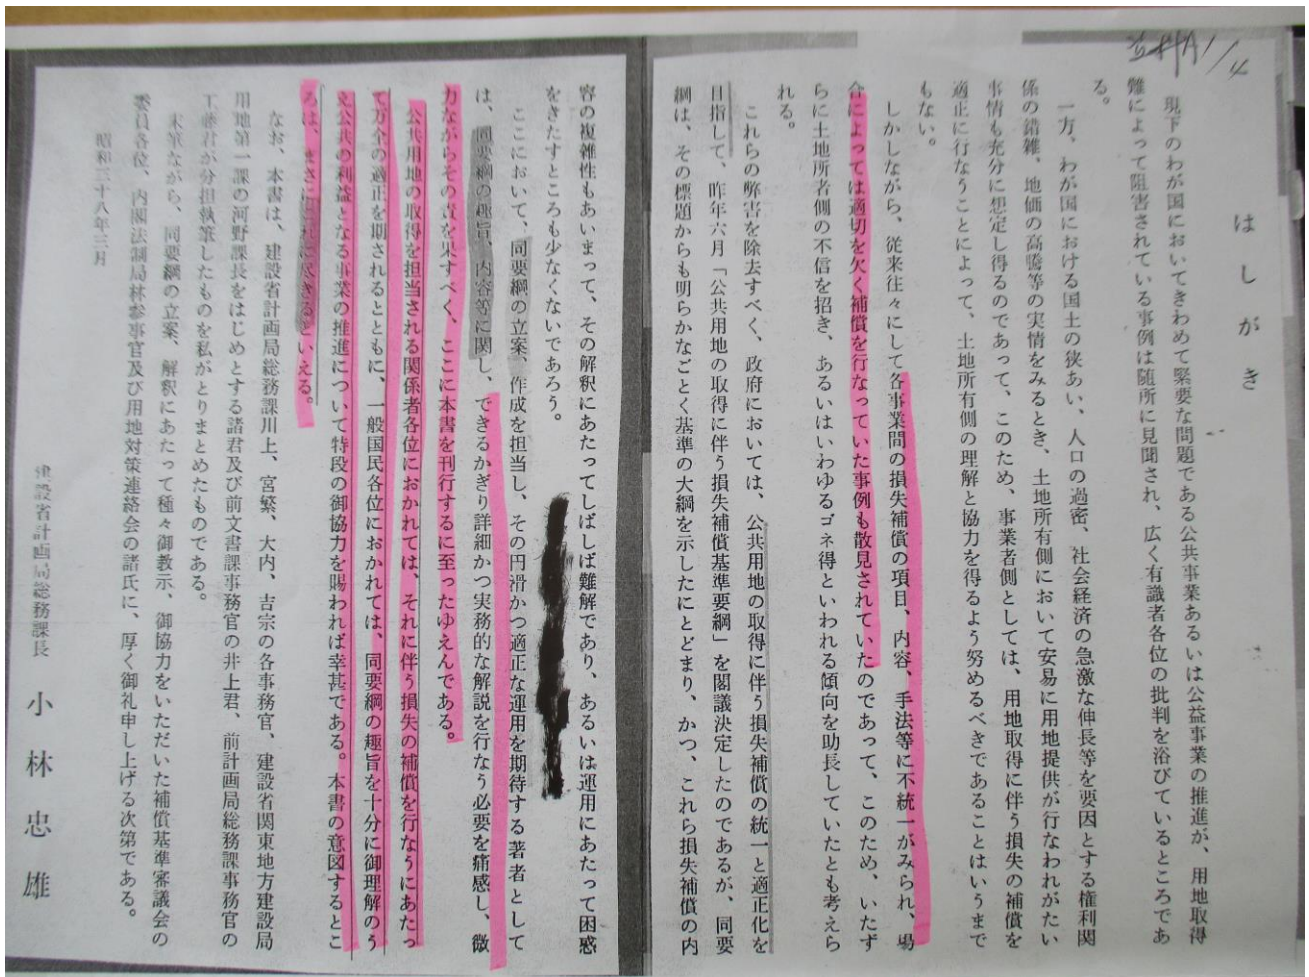 はしがき
現下のわが国においてきわめて緊要な問題である公共事業あるいは公益事業の推進が、用地取得
難によって阻害されている事例は随所に見聞され、広く有識者各位の批判を浴びているところであ
る。
一方、わが国における国土の狭あい、人口の過密、社会経済の急激な伸長等を要因とする権利関
係の錯雑、地価の高騰等の実情をみるとき、土地所有側において安易に用地提供が行なわれがたい
事情も充分に想定し得るのであって、このため、事業者側としては、用地取得に伴う損失の補償を
適正に行なうことによって、土地所有側の理解と協力を得るよう努めるべきであることはいうまで
もない。
しかしながら、従来往々にして各事業間の損失補償の項目、内容、手法等に不統一がみられ、場
合によっては適切を欠く補償を行なっていた事例も散見されていたのであって、このため、いたず
らに土地所有者側の不信を招き、あるいはいわゆるゴネ得といわれる傾向を助長していたとも考えら
れる。
これらの弊害を除去すべく、政府においては、公共用地の取得に伴う損失補償の統一と適正化を
目指して、昨年六月「公共用地の取得に伴う損失補償基準要綱」を閣議決定したのであるが、同要
綱は、その標題からも明らかなごとく基準の大綱を示したにとどまり、かつ、これら損失補償の内
容の複雑性もあいまって、その解釈にあたってしばしば難解であり、あるいは運用にあたって困惑
をきたすところも少なくないであろう。
ここにおいて、同要綱の立案、作成を担当し、その円滑かつ適正な運用を期待する著者として
は、同要綱の趣旨、内容等に関し、できるかぎり詳細かつ実務的な解説を行なう必要を痛感し、微
力ながらその責を果すべく、ここに本書を刊行するに至ったゆえんである。
公共用地の取得を担当される関係者各位におかれては、それに伴う損失の補償を行なうにあたっ
て万全の適正を期されるとともに、一般国民各位におかれては、同要綱の趣旨を十分に御理解のう
え公共の利益となる事業の推進について特段の御協力を賜われば幸甚である。本書の意図するとこ
ろは、まさにこれに尽きるといえる。
なお、本書は、建設省計画局総務課川上、宮繁、大内、吉宗の各事務官、建設省関東地方建設局
用地第一課の河野課長をはじめとする諸君及び前文書課事務官の井上君、前計画局総務課事務官の
工藤君が分担執筆したものを私がとりまとめたものである。
末筆ながら、同要綱の立案、解釈にあたって種々御教示、御協力をいただいた補償基準審議会の
委員各位、内閣法制局林参事官及び用地対策連絡会の諸氏に、厚く御礼申し上げる次第である。
昭和三十八年三月
建設省計画局総務課長　小林忠雄